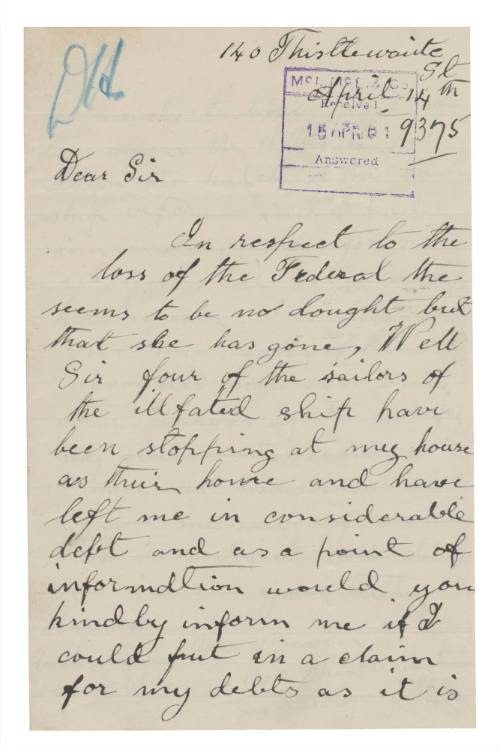 140 Thistlewaite
St
April 14th
DH
McI, McE. & Co.
Received
15 APR 01
9375
Answered
Dear Sir
In respect to the
loss of the Federal the
seems to be no dought but
that she has gone, Well
Sir four of the sailors of
the illfated ship have
been stopping at my house
as their home and have
left me in considerable
debt and as a point of
information would you
kindly inform me if I
could put in a claim
for my debts as it is